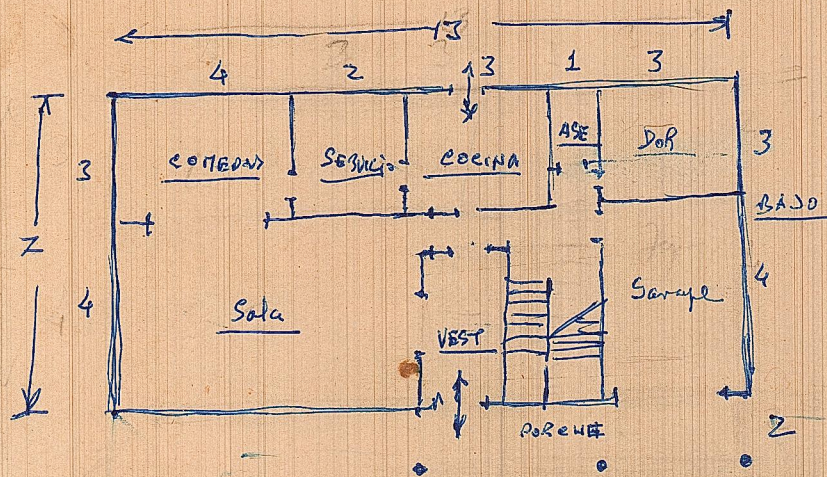 13
4 2 3 1 3
3 COMEDOR SERVICIO COCINA ASE DOR 3
BAJO
7
4 Sala VEST Garage 4
PORCHE 2